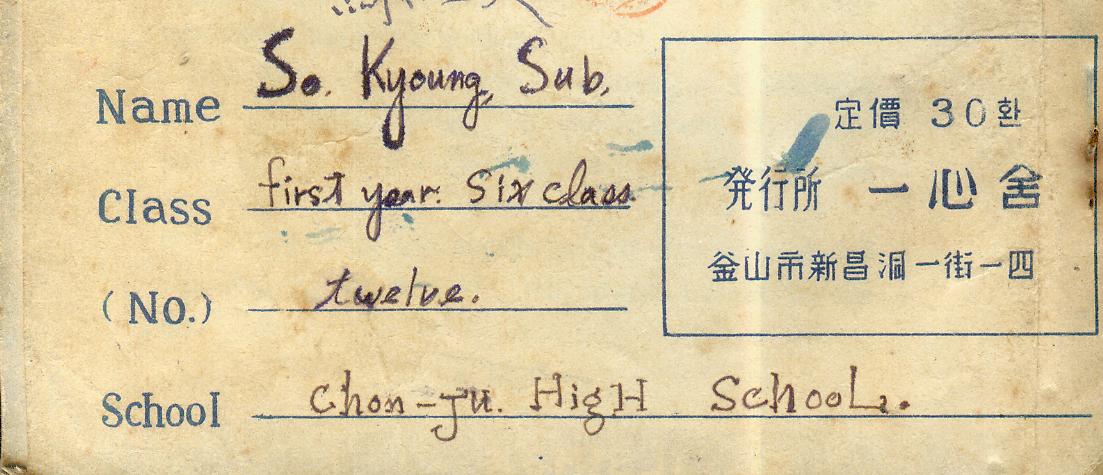 Name So. Kyoung, Sub.
Class first year. Six class.
(No.) twelve.
School Chon-Ju. HigH SchooL.
定價 30환
発行所 一心舍
釜山市新昌洞一街一四